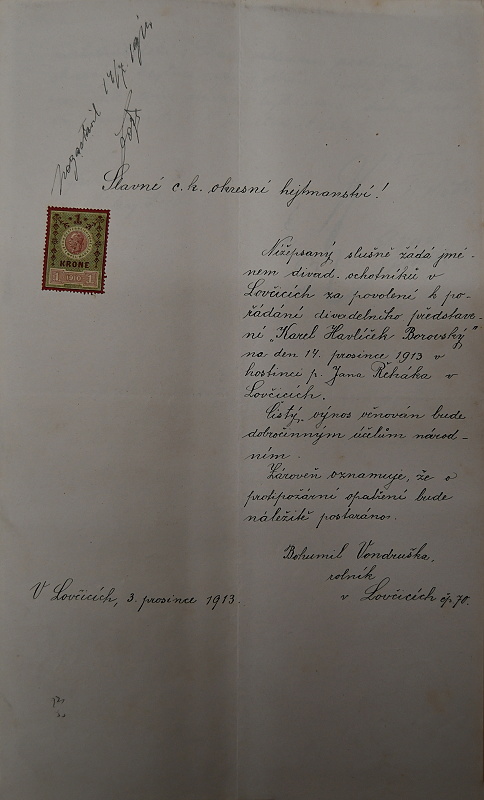 14/7. 1914
Slavné c. k. okresní hejtmanství!
1
KRONE
1 1910 1
Nížepsaný slušně žádá jmé-
nem divad. ochotníků v
Lovčicích za povolení k po-
řádání divadelního představe-
ní „Karel Havlíček Borovský"
na den 14. prosince 1913 v
hostinci p. Jana Řeháka v
Lovčicích.
Čistý výnos věnován bude
dobročinným účelům národ-
ním.
Zároveň oznamuje, že o
protipožární opatření bude
náležitě postaráno.
Bohumil Vondruška,
rolník
v Lovčicích čp. 70.
V Lovčicích, 3. prosince 1913.